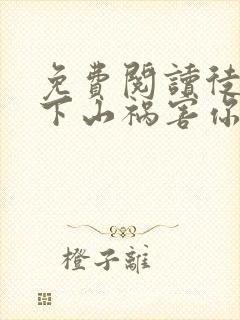 免費閱讀徒
下山禍害你
橙子離